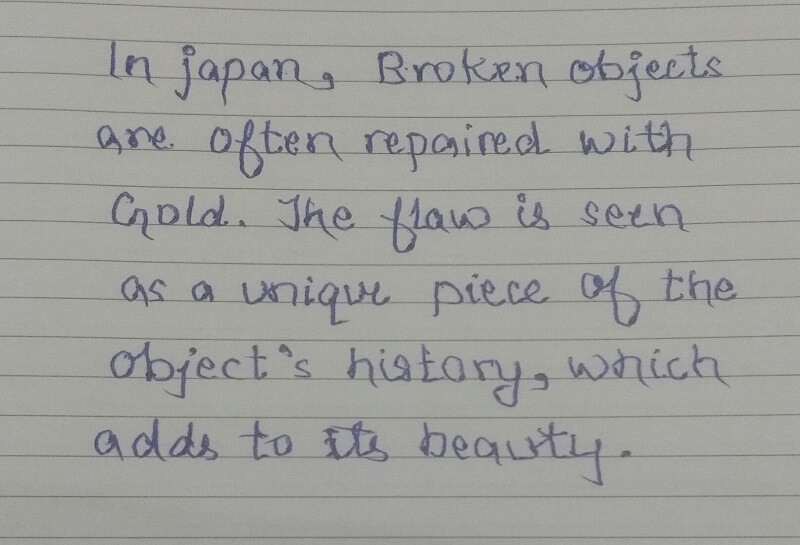 In japan, Broken objects
are often repaired with
Gold. The flaw is seen
as a unique piece of the
object's history, which
adds to its beauty.